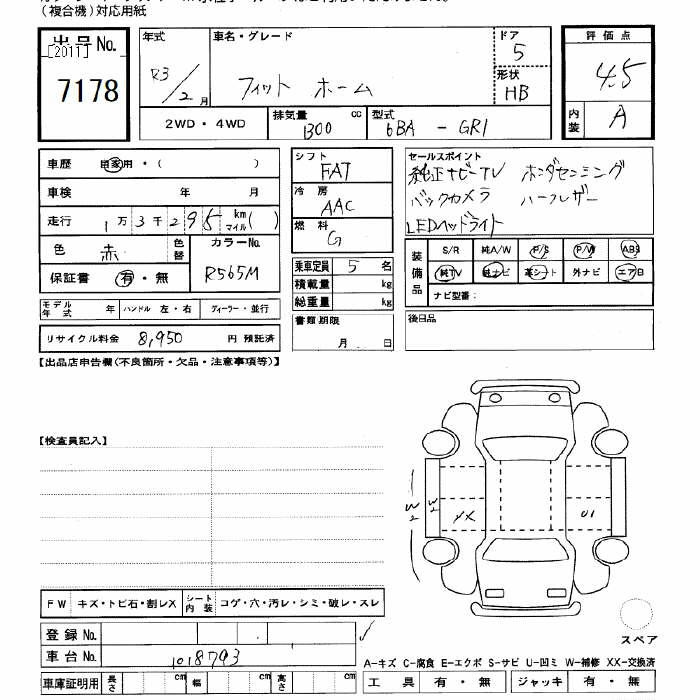 (複合機)対応用紙
出品No.
[2011]
7178
年式
R3/2月
車名・グレード
フィット ホーム
ドア
5
形状
HB
2WD・4WD
排気量
1300 cc
型式
6BA - GR1
評価点
4.5
内装
A
車歴 自家用・( )
車検 年 月
走行 1万3千295 km マイル( )
色 赤
色替
カラーNo.
R565M
保証書 有・無
モデル年式 年 ハンドル 左・右 ディーラー・並行
リサイクル料金 8,950 円 預託済
シフト
FAT
冷房
AAC
燃料
G
乗車定員 5 名
積載量 kg
総重量 kg
書類期限
月 日
セールスポイント
純正ナビーTV ホンダセンシング
バックカメラ ハーフレザー
LEDヘッドライト
装備品
S/R 純A/W P/S P/W ABS
純TV 純ナビ 革シート 外ナビ エアB
ナビ型番:
後日品
【出品店申告欄(不良箇所・欠品・注意事項等)】
【検査員記入】
W2
W2
XX
U1
FW キズ・トビ石・割レX シート内装 コゲ・穴・汚レ・シミ・破レ・スレ
登録No.
車台No. 1018793
スペア
A-キズ C-腐食 E-エクボ S-サビ U-凹ミ W-補修 XX-交換済
車庫証明用 長さ cm 幅 cm 高さ cm
工具 有・無 ジャッキ 有・無